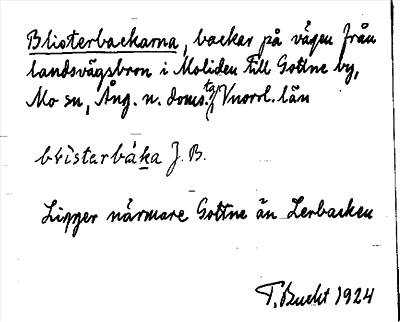 Blisterbackarna, backar på vägen från
landsvägsbron i Moliden till Gottne by,
Mo sn, Ång. n. doms.tg, Vnorrl. län
blisterbáka J. B.
Ligger närmare Gottne än Lerbacken
T. Bucht 1924